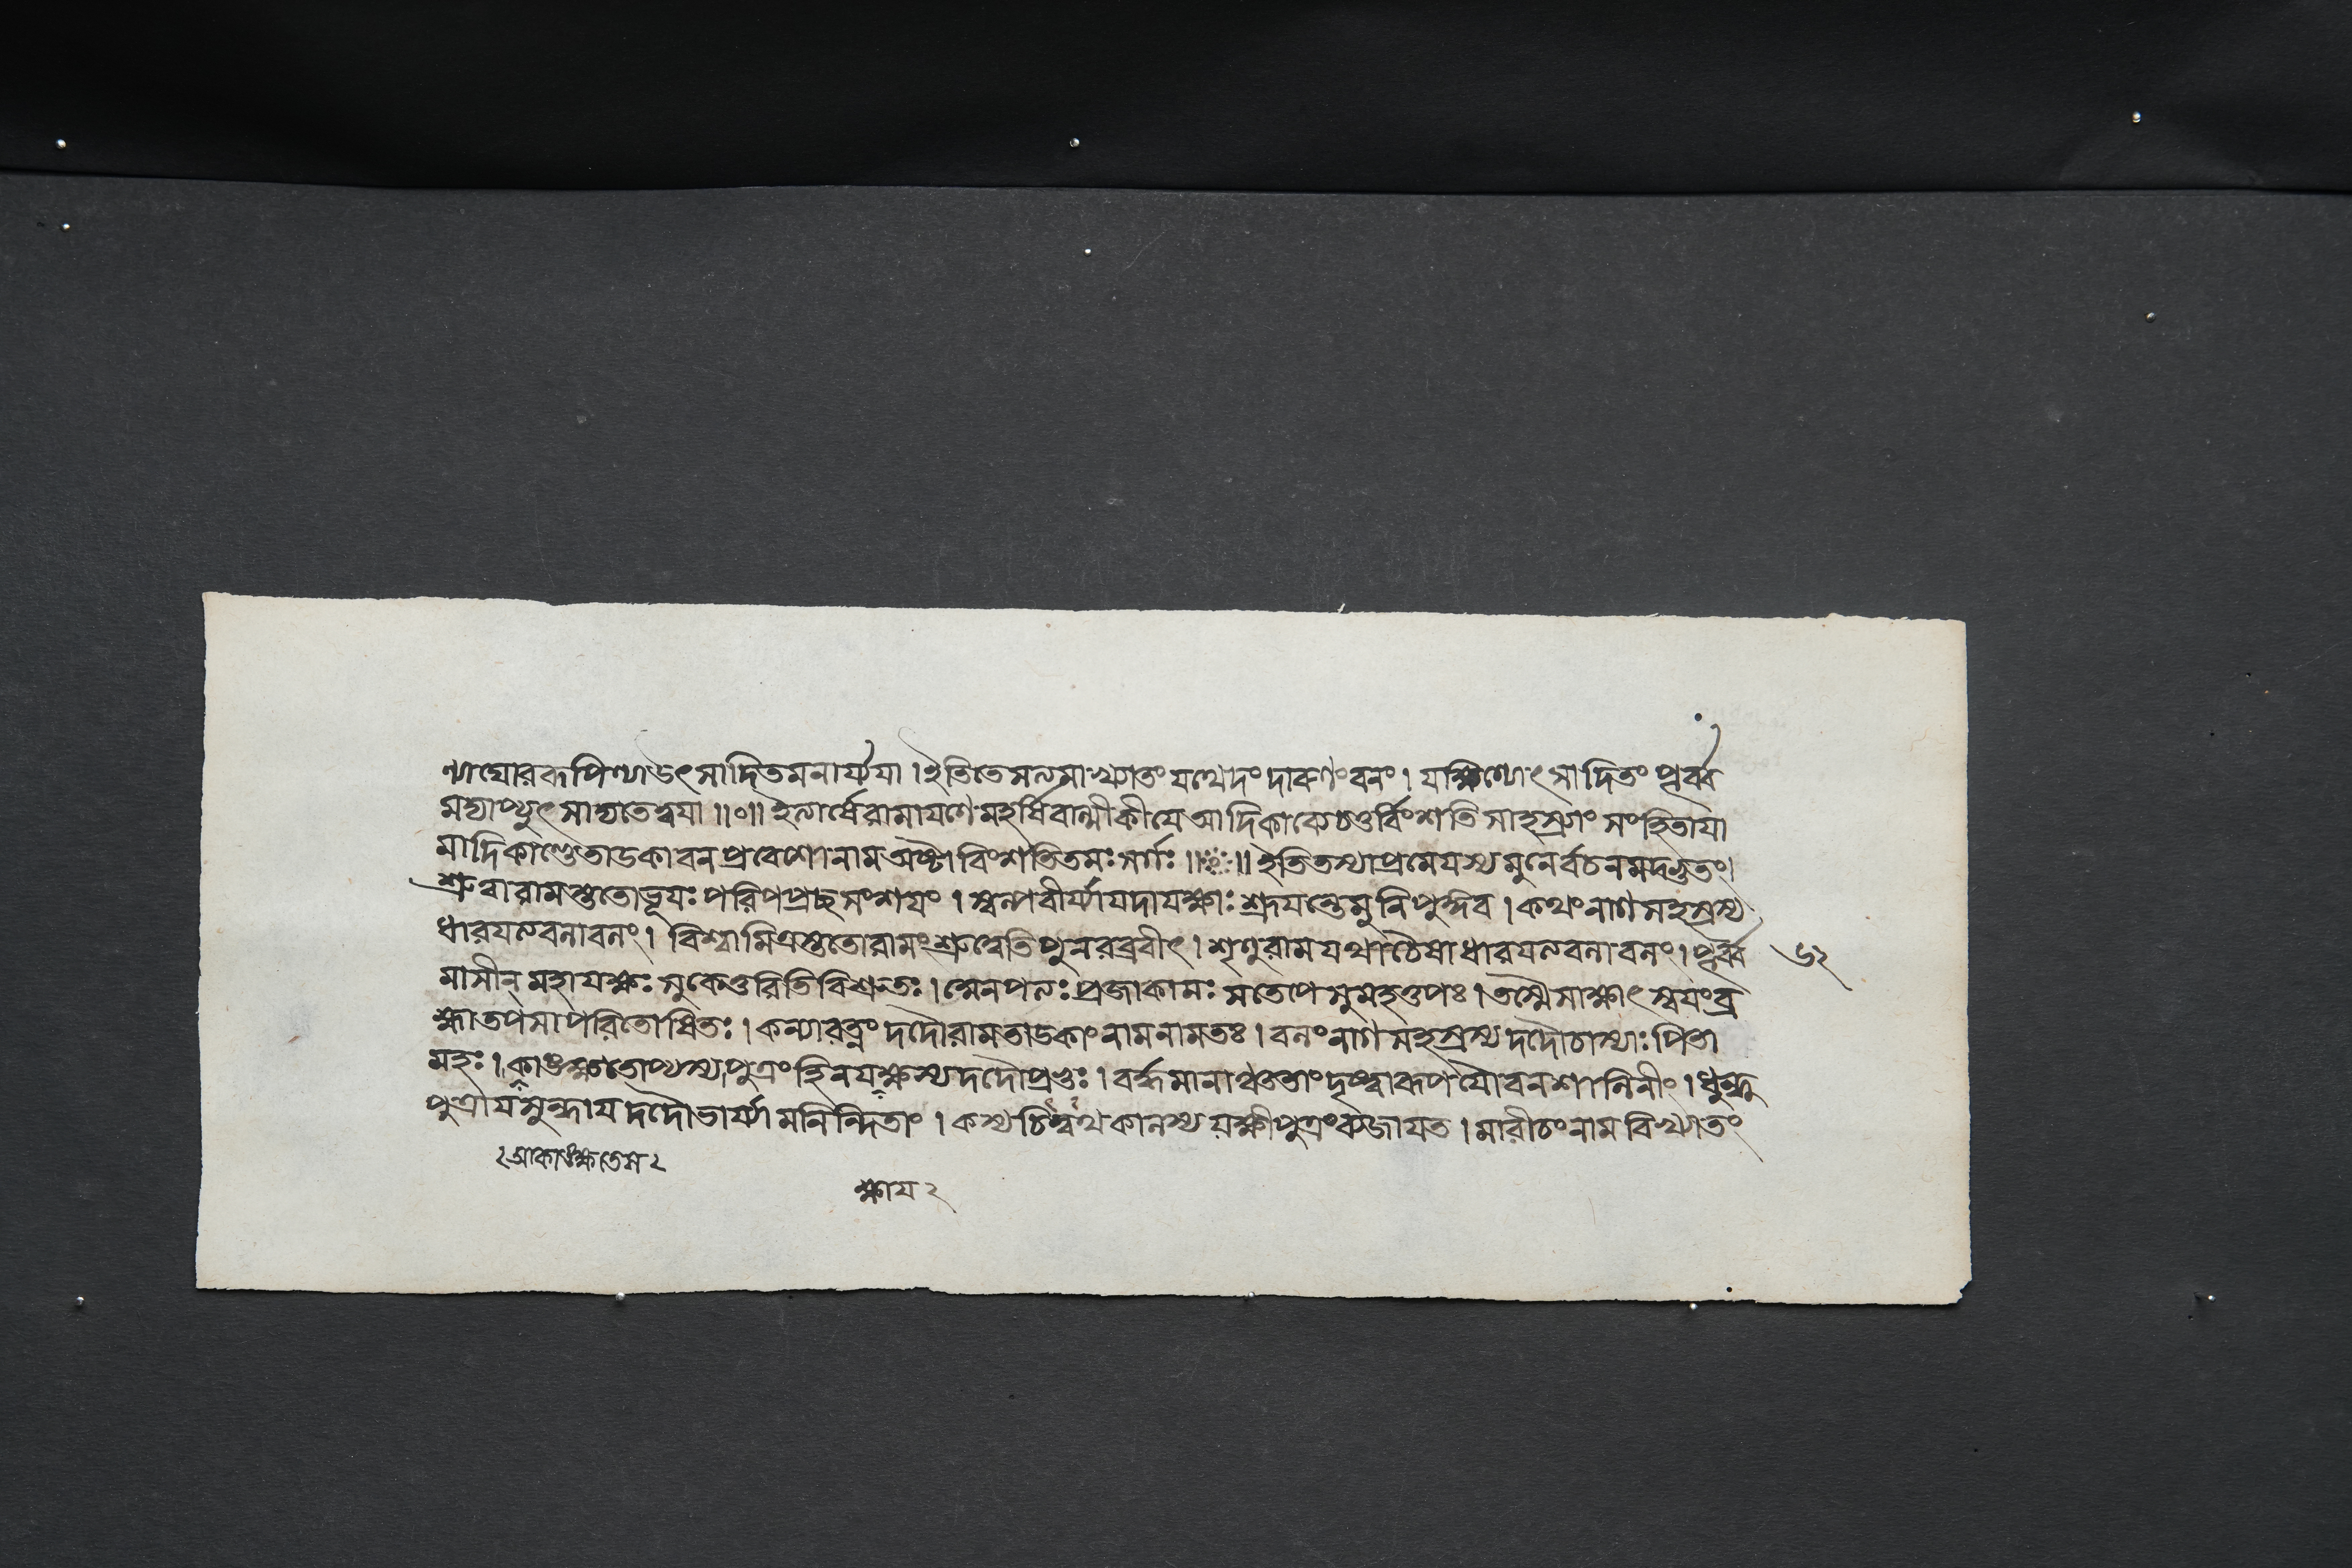 ণ্যাঘোররূপিণ্যাউৎসাদিতমনার্য্যযা । ইতিতেসত্যমাখ্যাতং যথেদং দারুণংবনং । যক্ষিণ্যোৎসাদিতং পূর্ব্ব
মদ্যাপ্যুৎসাদ্যতেত্বযা ॥০॥ ইত্যার্ষেরামাযণেমহর্ষিবাল্মীকীযেআদিকাব্যেচতুর্বিংশতিসাহস্র্যাং সংহিতাযা
মাদিকাণ্ডেতাডকাবনপ্রবেশোনামঅষ্টাবিংশতিতমঃ সর্গঃ ॥ ॥ ইতিতস্যাপ্রমেযস্যমুনের্বচনমদভুতং।
শ্রুত্বারামস্ততোভূযঃ পরিপপ্রচ্ছসংশযং । স্বল্পবীর্য্যাযদাযক্ষাঃ শ্রূযন্তেমুনিপুঙ্গব । কথংনাগসহস্রস্য
ধারযত্যবলাবলং। বিশ্বামিত্রস্ততোরামংশ্রুত্বেতিপুনরব্রবীৎ। শৃণুরামযথাচৈষাধারযত্যবলাবলং। পূর্ব্ব ৬২
মাসীন্মহাযক্ষঃ সুকেতুরিতিবিশ্রুতঃ। সোনপত্যঃ প্রজাকামঃ সতেপেসুমহত্তপঃ। তস্মৈসাক্ষাৎস্বযংব্র
হ্মাতপসাপরিতোষিতঃ। কন্যারত্নং দদৌরামতাডকাংনামনামতঃ। বলংনাগসহস্রস্যদদৌচাস্যাঃপিতা
মহঃ। কাঙক্ষতোপ্যস্যপুত্রংহিনযক্ষস্যদদৌপ্রভুঃ। বর্দ্ধমানান্ততস্তাংদৃষ্ট্বারূপযৌবনশালিনীং। ধুন্ধু
পুত্রাযসুন্দাযদদৌভার্য্যামনিন্দিতাং। কস্যচিত্ত্বথকালস্যযক্ষীপুত্রংব্যজাযত। মারীচংনামবিখ্যাতং
২আকাঙক্ষতেস২
ক্ষায ২